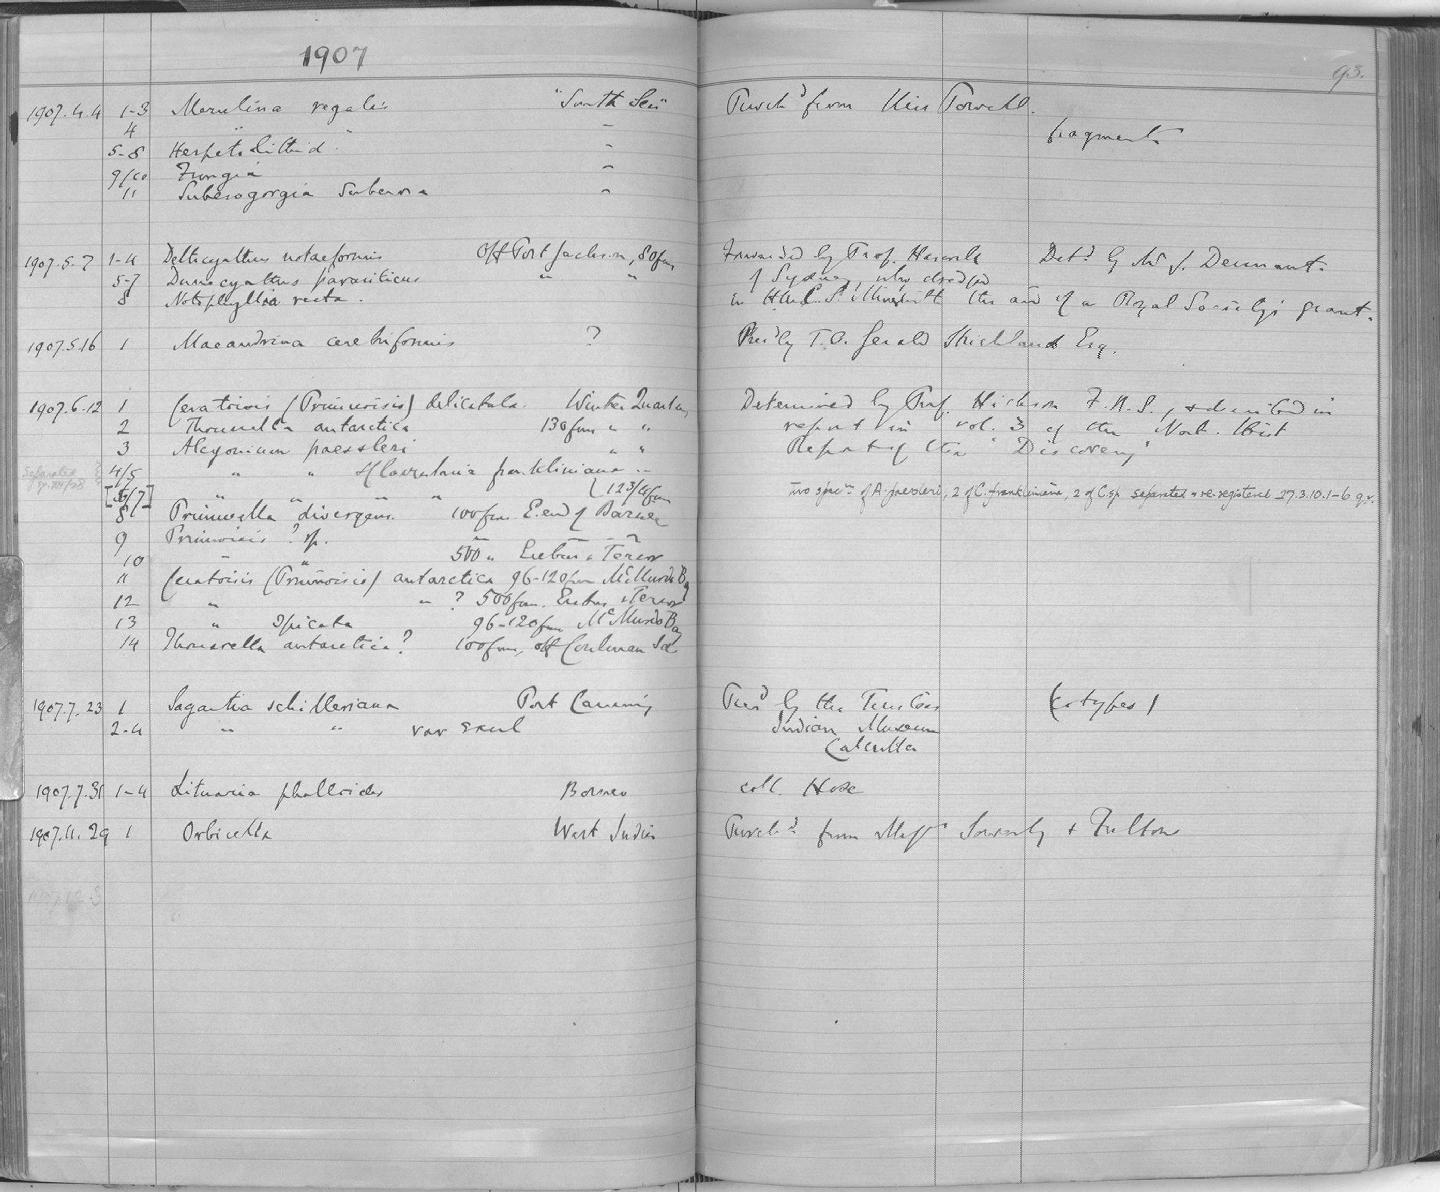 1907
93.
1907.4.4 1-3 Merulina regalis "South Sea" Purchd from Miss Powell.
4 " " " fragments
5-8 Herpetolithid "
9/10 Fungia "
11 Suberogorgia suberosa "
1907.5.7 1-4 Deltocyathus rotaeformis Off Port Jackson, 80 fms Forwarded by Prof. Haswell Detd by Mr J. Dennant.
5-7 Dunocyathus parasiticus " " of Sydney, who dredged
8 Notophyllia recta. in H.M.C.S. Miner with the aid of a Royal Society's grant.
1907.5.16 1 Maeandrina cerebriformis ? Presd by T.O. Gerald Strickland Esq.
1907.6.12 1 Ceratoisis (Primnoisis) delicatula. Winter Quarters Determined by Prof. Hickson F.R.S., & described in
2 Thouarella antarctica 130 fms " " report in vol. 3 of the Nat. Hist
3 Alcyonium paessleri " " Report of the "Discovery"
separated 4/5 " " & Clavularia frankliniana
[6/7] " " " " 12 3/4 fm two specns of A. paessleri, 2 of C. frankliniana, 2 of C. sp. separated & re-registered 27.3.10.1-6 q.v.
8 Primnoella divergens. 100 fms E. end of Barrier
9 Primnoisis ? sp. " " "
10 " 500 " Erebus & Terror
11 Ceratoisis (Primnoisis) antarctica 96-120 fms McMurdo Bay
12 " " ? 500 fms. Erebus & Terror
13 " spicata 96-120 fms McMurdo Bay
14 Thouarella antarctica? 100 fms, off Coulman Isd
1907.7.23 1 Sagartia schilleriana Port Canning Presd by the Trustees (cotypes)
2-4 " " var exul Indian Museum
Calcutta
1907.7.31 1-4 Lituaria phalloides Borneo coll. Hose
1907.11.29 1 Orbicella West Indies Purchd from Messrs Sowerby & Fulton